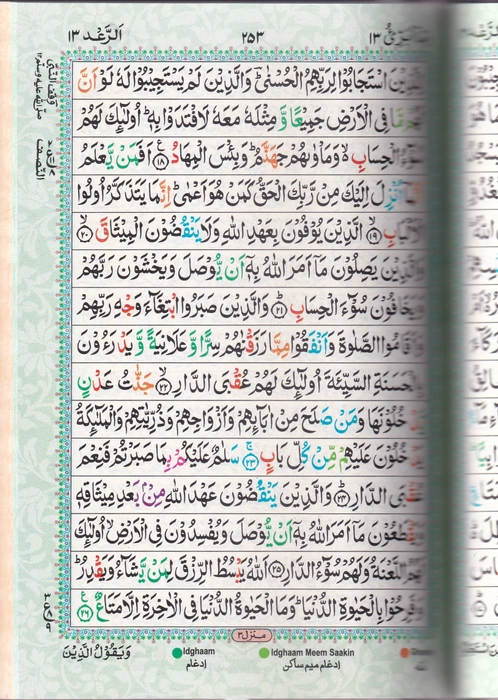 اَلرَّعْد ١٣
٢٥٣
١٣
اسْتَجَابُوْا لِرَبِّهِمُ الْحُسْنٰىؔ وَالَّذِيْنَ لَمْ يَسْتَجِيْبُوْا لَهٗ لَوْ اَنَّ
فِى الْاَرْضِ جَمِيْعًا وَّمِثْلَهٗ مَعَهٗ لَافْتَدَوْا بِهٖؕ اُولٰٓئِكَ لَهُمْ
الْحِسَابِ ۙ۬ وَمَاْوٰىهُمْ جَهَنَّمُؕ وَبِئْسَ الْمِهَادُ ﴿١٨﴾ اَفَمَنْ يَّعْلَمُ
اُنْزِلَ اِلَيْكَ مِنْ رَّبِّكَ الْحَقُّ كَمَنْ هُوَ اَعْمٰىؕ اِنَّمَا يَتَذَكَّرُ اُولُوا
الْاَلْبَابِ ﴿١٩﴾ الَّذِيْنَ يُوْفُوْنَ بِعَهْدِ اللّٰهِ وَلَا يَنْقُضُوْنَ الْمِيْثَاقَ ﴿٢٠﴾
وَالَّذِيْنَ يَصِلُوْنَ مَاۤ اَمَرَ اللّٰهُ بِهٖۤ اَنْ يُّوْصَلَ وَيَخْشَوْنَ رَبَّهُمْ
وَيَخَافُوْنَ سُوْٓءَ الْحِسَابِ ﴿٢١﴾ وَالَّذِيْنَ صَبَرُوا ابْتِغَآءَ وَجْهِ رَبِّهِمْ
وَاَقَامُوا الصَّلٰوةَ وَاَنْفَقُوْا مِمَّا رَزَقْنٰهُمْ سِرًّا وَّعَلَانِيَةً وَّيَدْرَءُوْنَ
بِالْحَسَنَةِ السَّيِّئَةَ اُولٰٓئِكَ لَهُمْ عُقْبَى الدَّارِ ﴿٢٢﴾ جَنّٰتُ عَدْنٍ
يَّدْخُلُوْنَهَا وَمَنْ صَلَحَ مِنْ اٰبَآئِهِمْ وَاَزْوَاجِهِمْ وَذُرِّيّٰتِهِمْ وَالْمَلٰٓئِكَةُ
يَدْخُلُوْنَ عَلَيْهِمْ مِّنْ كُلِّ بَابٍ ﴿٢٣﴾ سَلٰمٌ عَلَيْكُمْ بِمَا صَبَرْتُمْ فَنِعْمَ
عُقْبَى الدَّارِ ﴿٢٤﴾ وَالَّذِيْنَ يَنْقُضُوْنَ عَهْدَ اللّٰهِ مِنْۢ بَعْدِ مِيْثَاقِهٖ
وَيَقْطَعُوْنَ مَاۤ اَمَرَ اللّٰهُ بِهٖۤ اَنْ يُّوْصَلَ وَيُفْسِدُوْنَ فِى الْاَرْضِۙ اُولٰٓئِكَ
لَهُمُ اللَّعْنَةُ وَلَهُمْ سُوْٓءُ الدَّارِ ﴿٢٥﴾ اَللّٰهُ يَبْسُطُ الرِّزْقَ لِمَنْ يَّشَآءُ وَيَقْدِرُؕ
وَفَرِحُوْا بِالْحَيٰوةِ الدُّنْيَاؕ وَمَا الْحَيٰوةُ الدُّنْيَا فِى الْاٰخِرَةِ اِلَّا مَتَاعٌ ﴿٢٦﴾
منزل ٣
وَيَقُوْلُ الَّذِيْنَ
Idghaam
إدغام
Idghaam Meem Saakin
إدغام ميم ساكن